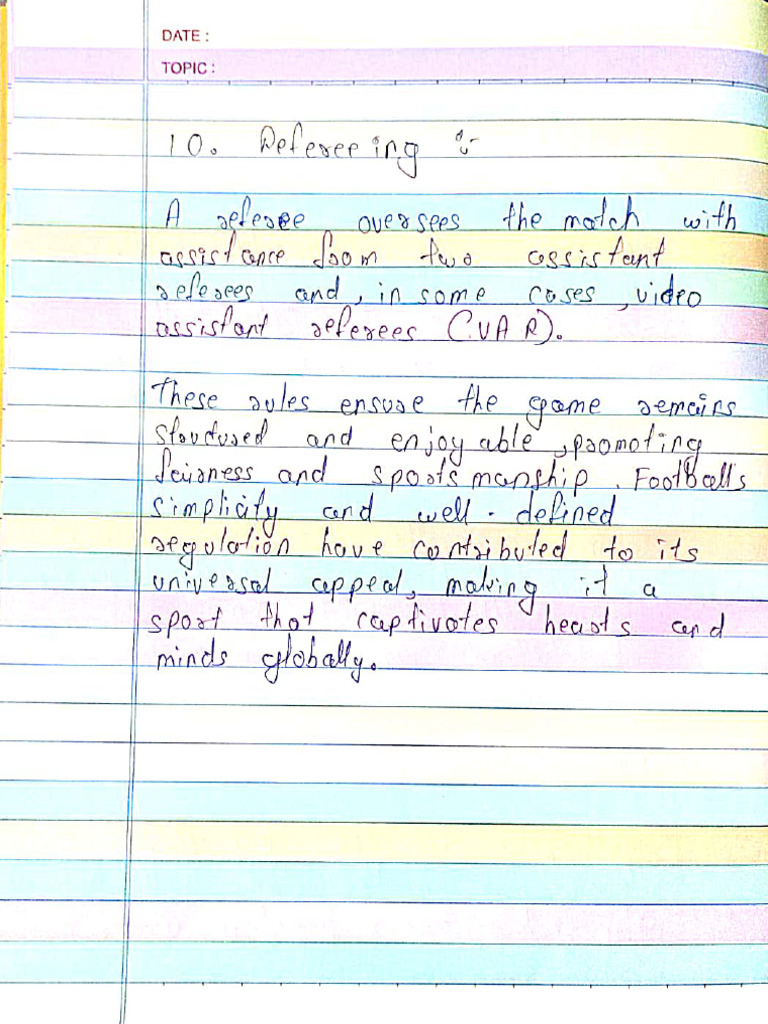 DATE :
TOPIC :
10. Refereeing :-
A referee oversees the match with
assistance from two assistant
referees and, in some cases, video
assistant referees (VAR).
These rules ensure the game remains
Structured and enjoyable, promoting
fairness and sportsmanship. Football's
simplicity and well-defined
regulation have contributed to its
universal appeal, making it a
sport that captivates hearts and
minds globally.